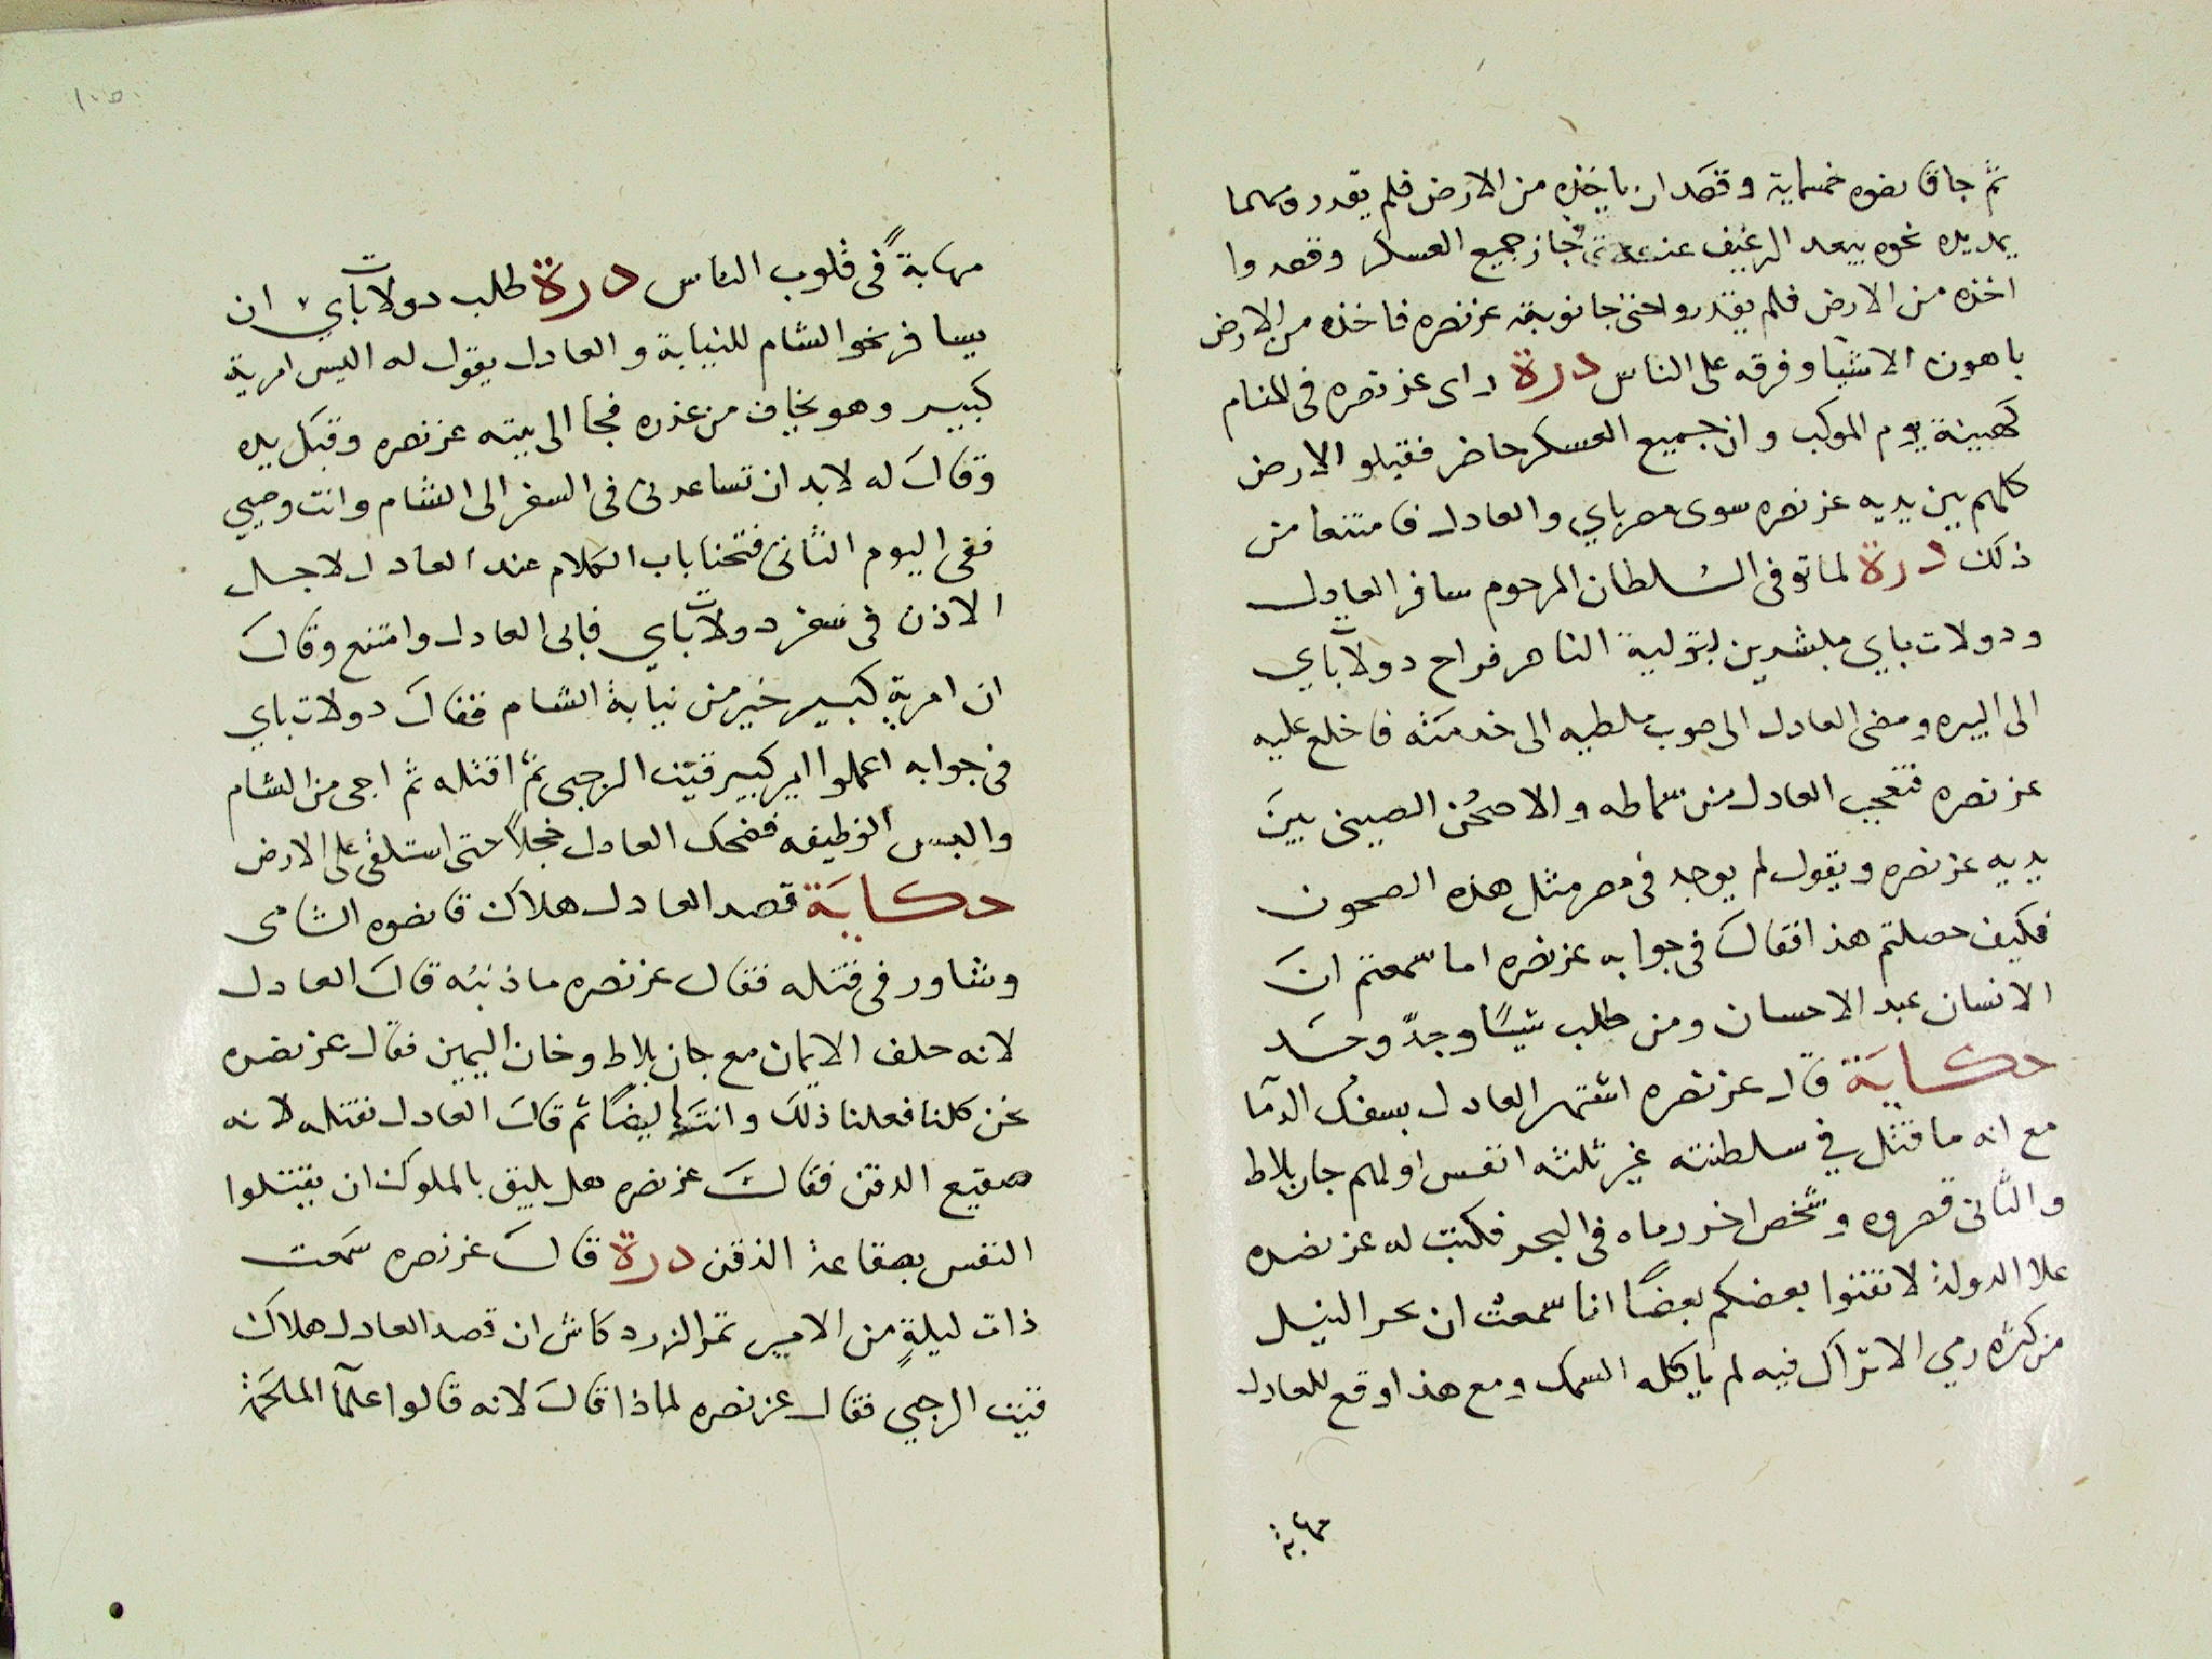 ثم جا قانصوه خمسماية وقصد ان ياخذه من الارض فلم يقدر ومهما
يمد يده نحوه يبعد الرغيف عنه ثم جاز جميع العسكر وقصدوا
اخذه من الارض فلم يقدروا حتى جا نوبة عز نصره فاخذه من الارض
باهون الاشيا وفرقه على الناس درة راى عز نصره فى المنام
كهيئة يوم الموكب وان جميع العسكر حاضر فقبلو الارض
كلهم بين يديه عز نصره سوى مصرباي والعادل فامتنعا من
ذلك درة لما توفى السلطان المرحوم سافر العادل
ودولات باي مبشرين بتولية الناصر فراح دولات باي
الى البيره ومضى العادل الى صوب ملطيه الى خدمته فاخلع عليه
عز نصره فتعجب العادل من سماطه والاصحن الصينى بين
يديه عز نصره ويقول لم يوجد فى مصر مثل هذه الصحون
فكيف حصلتم هذا فقال فى جوابه عز نصره اما سمعتم ان
الانسان عبد الاحسان ومن طلب شيئًا وجدّ وجد
حكاية قال عز نصره اشتهر العادل بسفك الدما
مع انه ما قتل في سلطنته غير ثلثه انفس اولهم جان بلاط
والثانى قصروه وشخص اخر رماه فى البحر فكتب له عز نصره
علا الدولة لا تفتنوا بعضكم بعضًا انا سمعت ان بحر النيل
من كثره رمي الاتراك فيه لم ياكله السمك ومع هذا وقع للعادل
مهابة
مهابةً فى قلوب الناس درة طلب دولات باي ان
يسافر نحو الشام للنيابة والعادل يقول له اليس امرية
كبير وهو يخاف من غدره فجا الى بيته عز نصره وقبل يده
وقال له لابد ان تساعدنى فى السفر الى الشام وانت وصيي
ففى اليوم الثانى فتحنا باب الكلام عند العادل لاجل
الاذن فى سفر دولات باي فابى العادل وامتنع وقال
ان امرية كبير خير من نيابة الشام فقال دولات باي
فى جوابه اعملوا امير كبير قيت الرجبى ثم اقتله ثم اجى من الشام
والبس الوظيفه فضحك العادل خجلاً حتى استلقى على الارض
حكاية قصد العادل هلاك قانصوه الشامى
وشاور فى قتله فقال عز نصره ما ذنبه قال العادل
لانه حلف الايمان مع جان بلاط وخان اليمين فقال عز نصره
نحن كلنا فعلنا ذلك وانت ايضًا ثم قال العادل نقتله لانه
صقيع الدقن فقال عز نصره هل يليق بالملوك ان يقتلوا
النفس بصقاعة الذقن درة قال عز نصره سمعت
ذات ليلةٍ من الامير تمر الزردكاش ان قصد العادل هلاك
قيت الرجبي فقال عز نصره لماذا قال لانه قالوا علمآ الملحمة